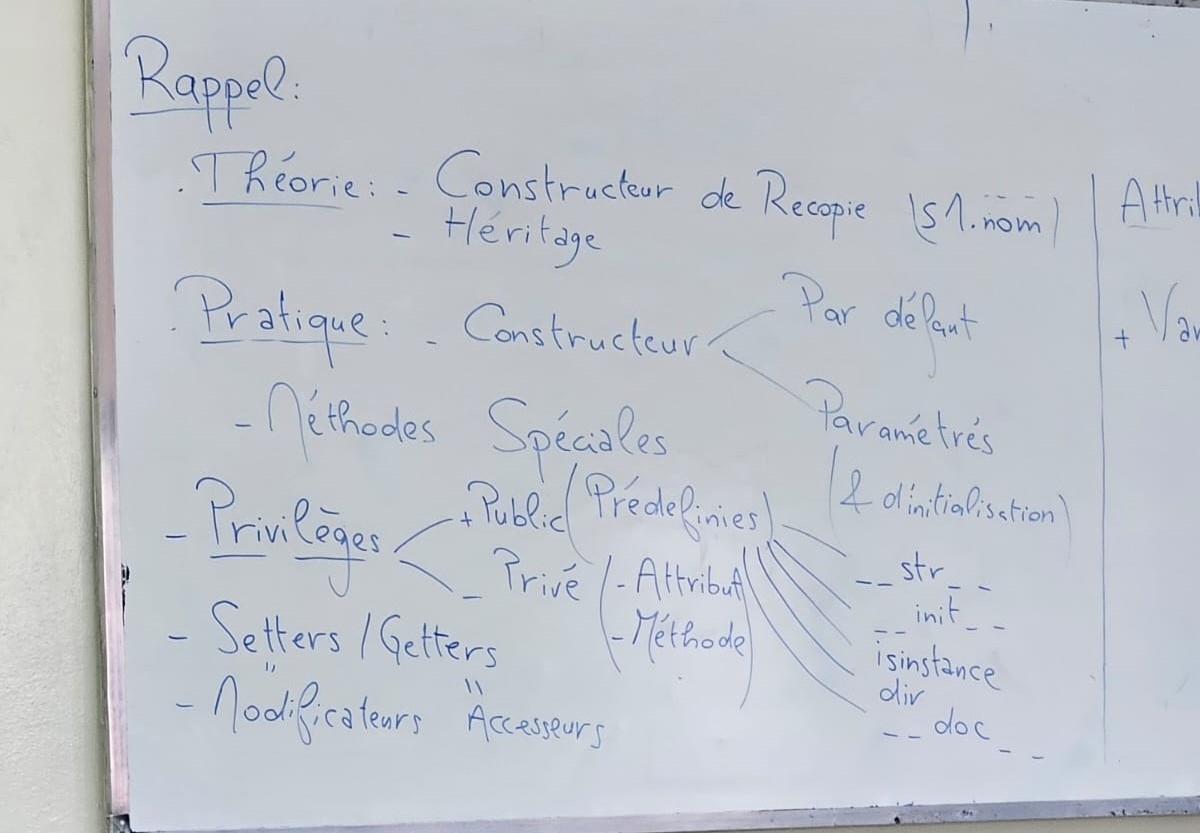 Rappel:
. Théorie: - Constructeur de Recopie (s1.nom)
- Héritage
. Pratique: - Constructeur
Par défaut
Paramétrés
(& d'initialisation)
- Méthodes Spéciales
(Prédefinies)
__str__
__init__
isinstance
dir
__doc__
- Privilèges
+ Public
- Privé (- Attribut
- Méthode)
- Setters / Getters
" "
- Modificateurs Accesseurs
Attri
+ Var